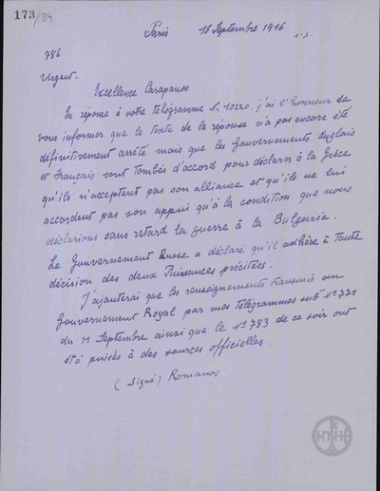 173/84
Paris 15 Septembre 1916
786
Urgent.
Excellence Carapanos
En réponse à votre télégramme Nº 10220 j'ai l'honneur de
vous informer que le texte de la réponse n'a pas encore été
définitivement arrêté mais que les Gouvernements Anglais
et Français sont tombés d'accord pour déclarer à la Grèce
qu'ils n'acceptent pas son alliance et qu'ils ne lui
accordent pas son appui qu'à la condition que nous
déclarions sans retard la guerre à la Bulgarie.
Le Gouvernement Russe a déclaré qu'il adhère à toute
décision des deux Puissances précitées.
J'ajouterai que les renseignements transmis au
Gouvernement Royal par mes télégrammes sub Nº 771
du 11 Septembre ainsi que le Nº 783 de ce soir ont
été puisés à des sources officielles.
(Signé) Romanos